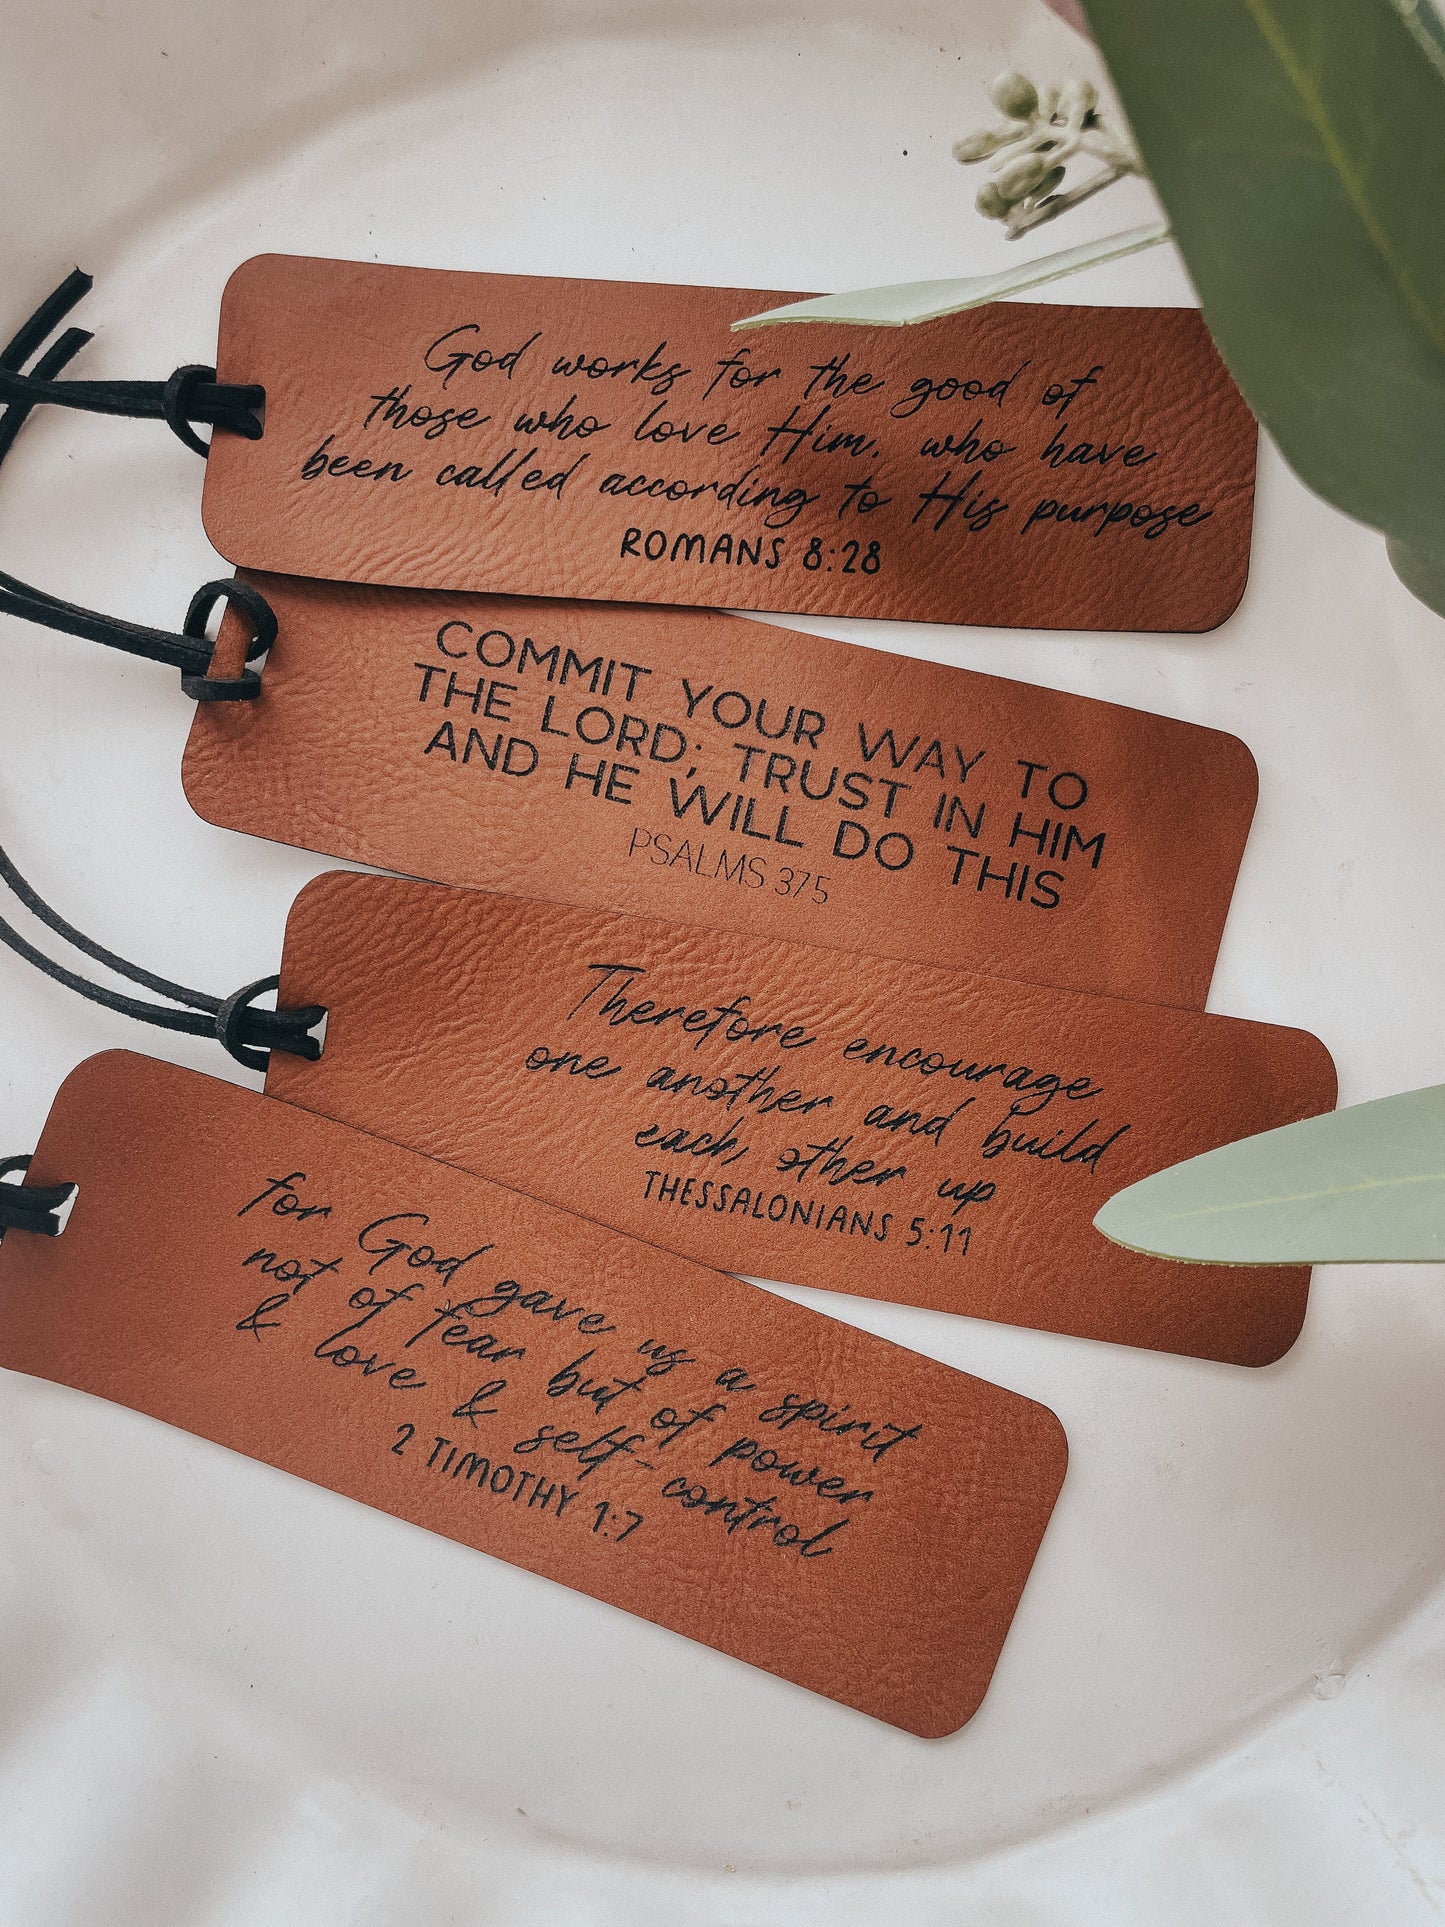 God works for the good of
those who love Him, who have
been called according to His purpose
ROMANS 8:28
COMMIT YOUR WAY TO
THE LORD; TRUST IN HIM
AND HE WILL DO THIS
PSALMS 37:5
Therefore encourage
one another and build
each other up
THESSALONIANS 5:11
for God gave us a spirit
not of fear but of power
& love & self-control
2 TIMOTHY 1:7